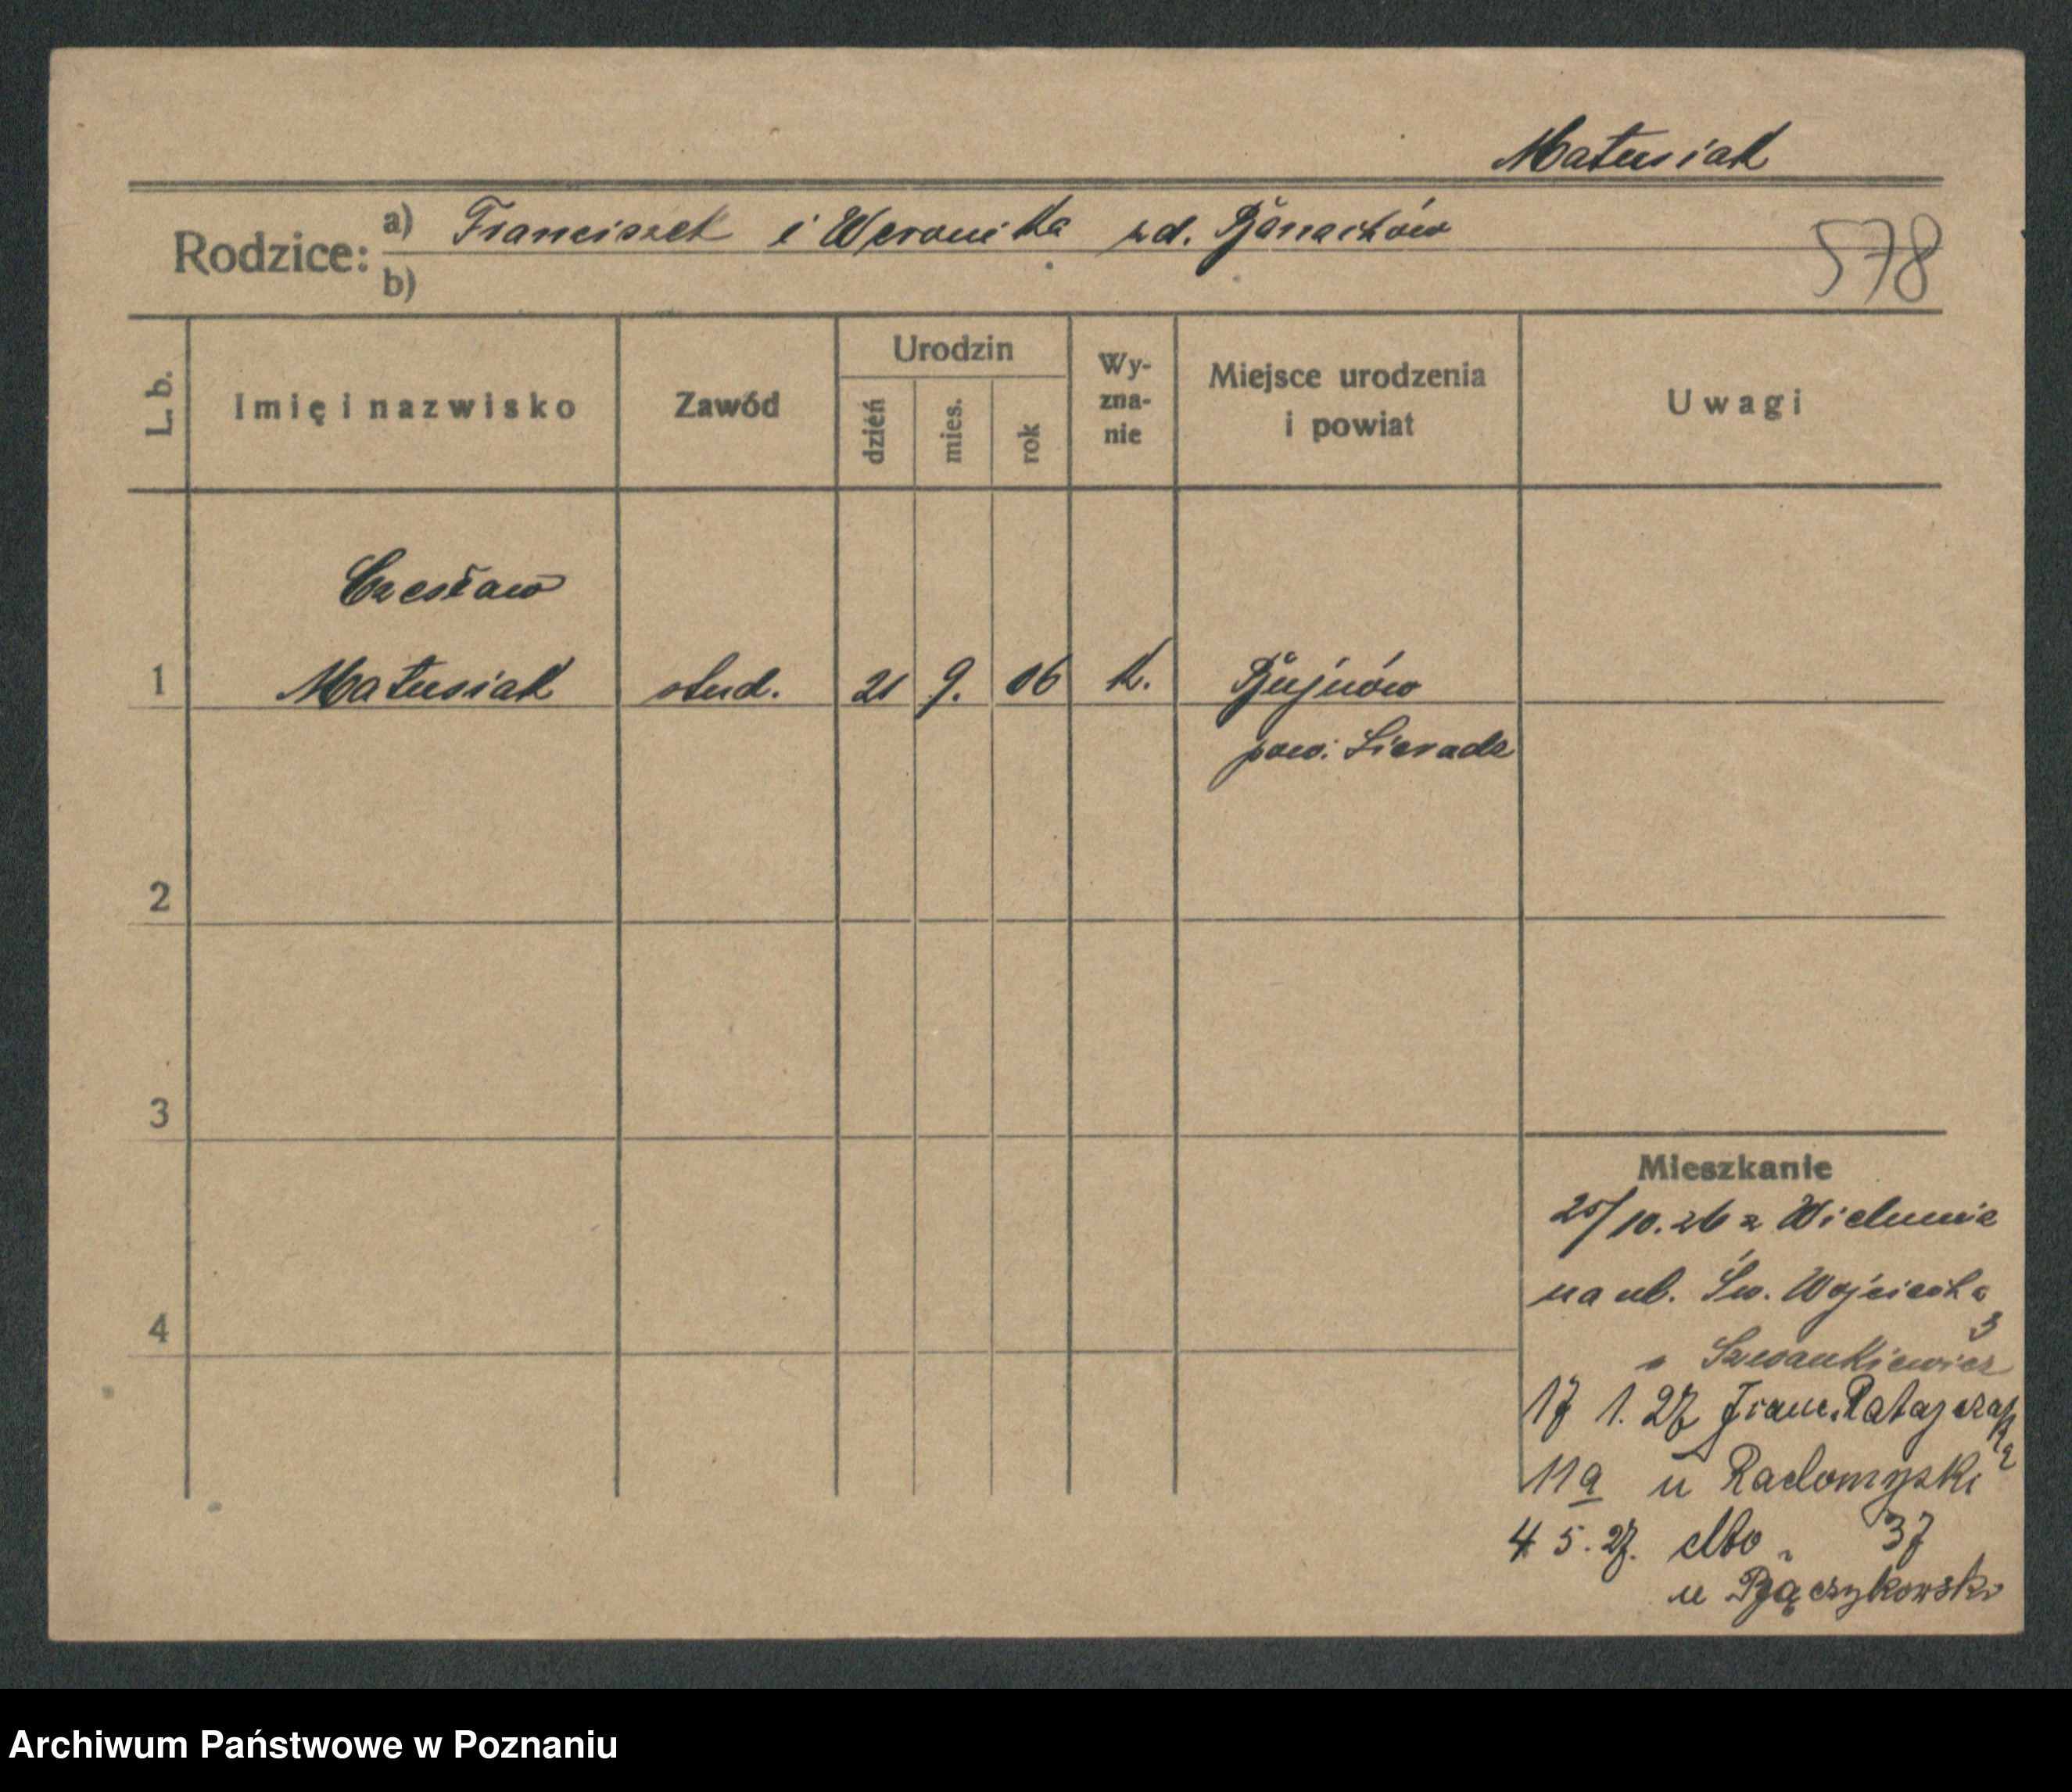 Matusiak
Rodzice: a) Franciszek i Weronika zd. Banachów
578
b)
L. b.
Imię i nazwisko
Zawód
Urodzin
dzień
mies.
rok
Wy-
zna-
nie
Miejsce urodzenia
i powiat
Uwagi
Czesław
1 Matusiak stud. 21 9. 06 k. Bujnów
pow. Sieradz
2
3
4
Mieszkanie
25/10.26 z Wielunia
na ul. Św. Wojciecha
3
17 1. 27 Franc. Ratajczaka
11a u Radomyski
4 5. 27. dto 37
u Bączykowski
Archiwum Państwowe w Poznaniu